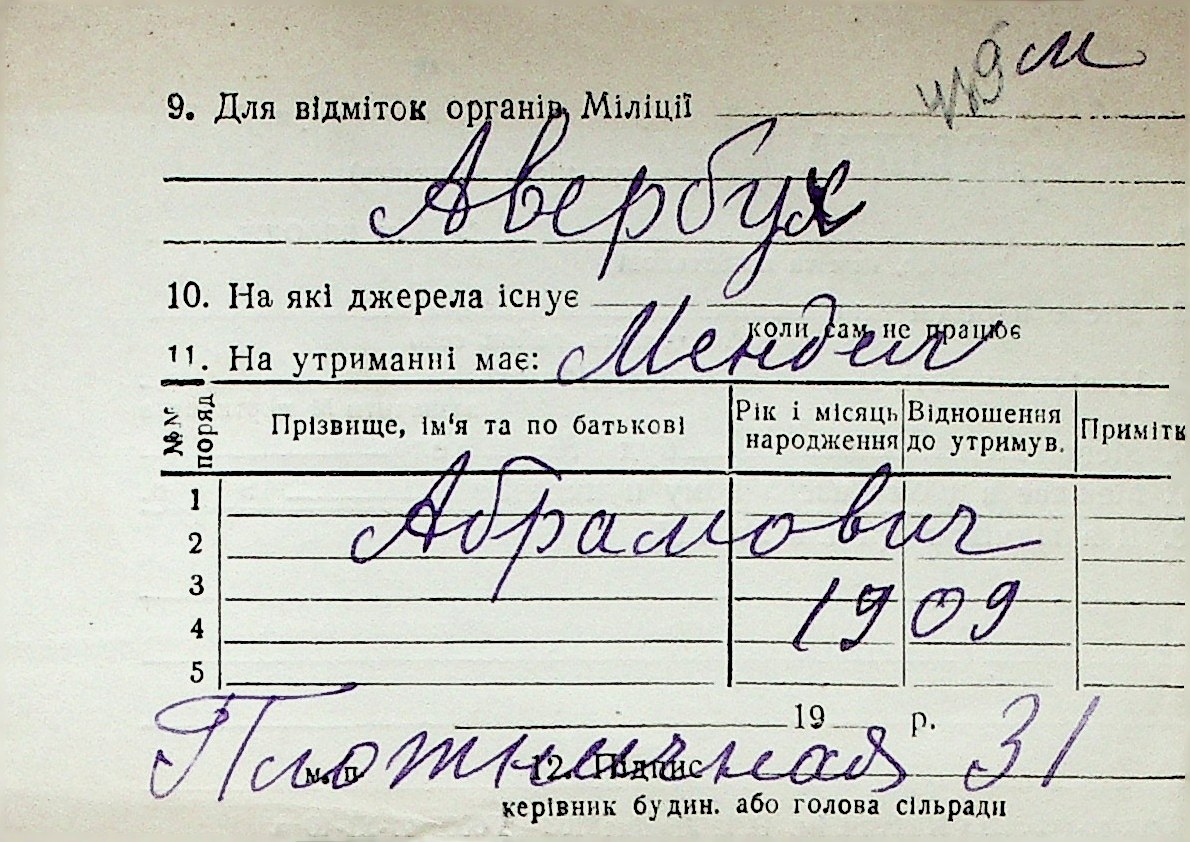 м
9. Для відміток органів Міліції
Авербух
10. На які джерела існує
коли сам не працює
11. На утриманні має: Мендел
№№ поряд Прізвище, ім'я та по батькові Рік і місяць народження Відношення до утримув. Примітк
1
2 Абрамович
3
4 1909
5
19 р.
Плотничная 31
м. п. 12. Підпис
керівник будин. або голова сільради